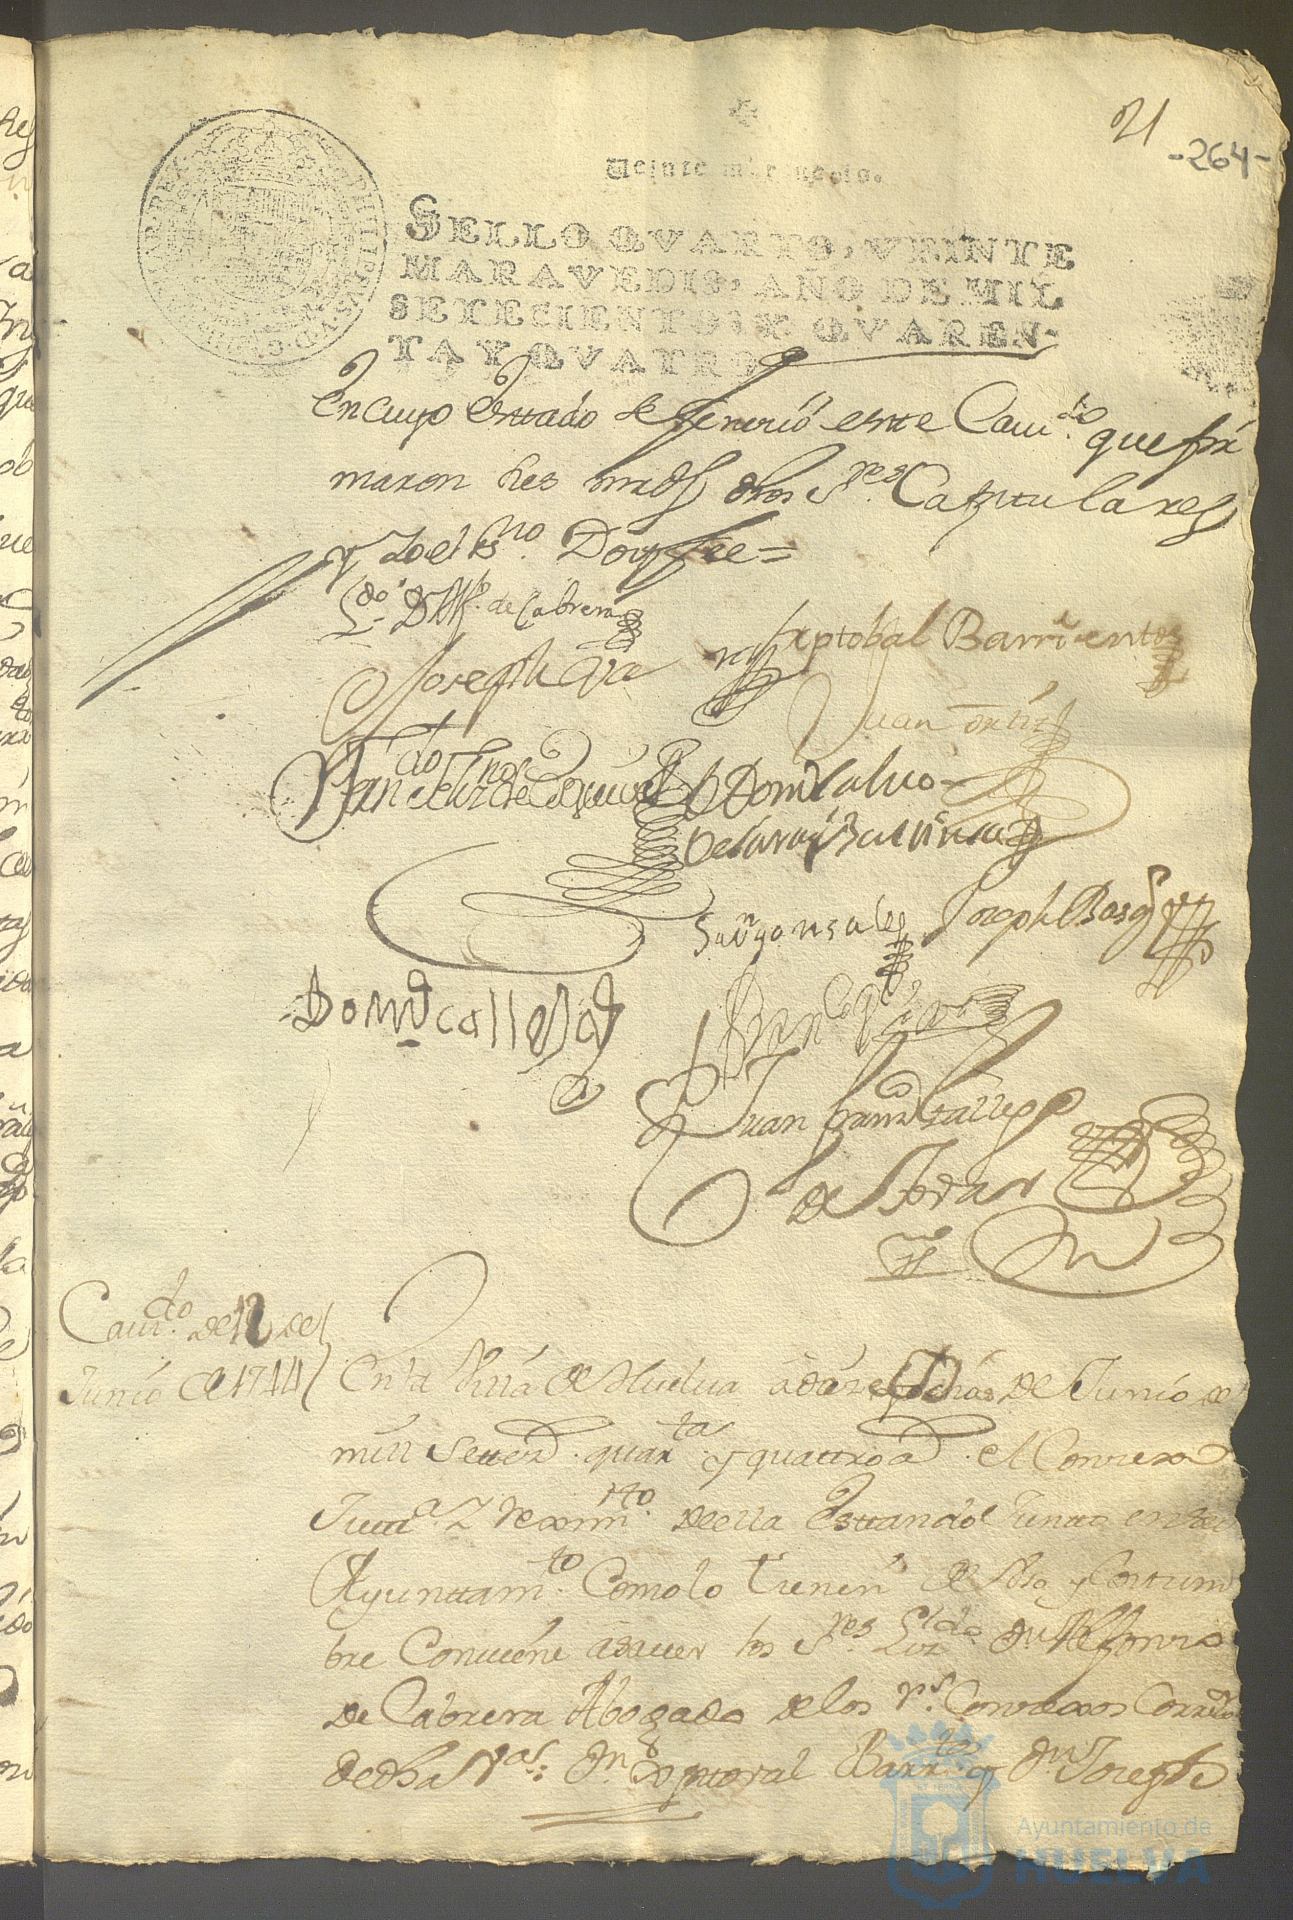 21
-264-
Veinte mrs
SELLO QVARTO, VEINTE
MARAVEDIS, AÑO DE MIL
SETECIENTOS Y QVAREN-
TA Y QVATRO
en cuyo esttado se feneció estte Cauᵈᵒ. que fir
maron sus mrds dhos Sʳᵉˢ. Capittulares
y Yo el esⁿᵒ. Doy fee =
Lᵈᵒ. Dⁿ Ilᵈᵒ. de Cabrera
Xptobal Barrientos
Joseph
Juan Ortiz
Domº Calvo
Joseph Basqᶻ
Domº calleja
Juan
de
Cauᵈᵒ. de 12 de
Junio de 1744
En la Villa de Huelva a doze dias de Junio de
mill Setteᶻ. quarᵗᵃ y quattro aˢ. el Conzexo
Justtᵃ Z Reximᵗᵒ. de ella Esttando Juntto en su
Ayunttamᵗᵒ. Como lo tienen de Vso y Costtum
bre Conuiene a sauer los Sʳᵉˢ Lizᵈᵒ Dⁿ Ilefonso
de Cabrera Abogado de los Rˢ. Consexos Correxᵒʳ
de dha Vᵃ: Dⁿ Xpttoval Barrᵗᵒˢ y Dⁿ Joseph
Ayuntamiento de
HUELVA